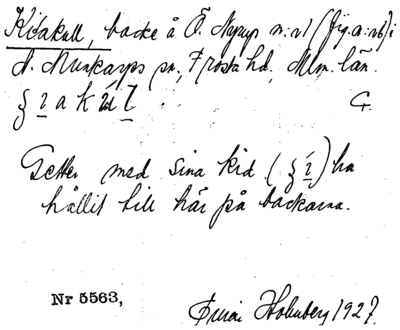 Kiakull, backe å Ö. Nyrup n:r1 (fig. a:nr6) i
N. Munkarps sn, Frosta hd. Mlm. län.
G.
Getter med sina kid ( ) ha
hållit till här på backarna.
Nr 5563,
Holmberg 1927.